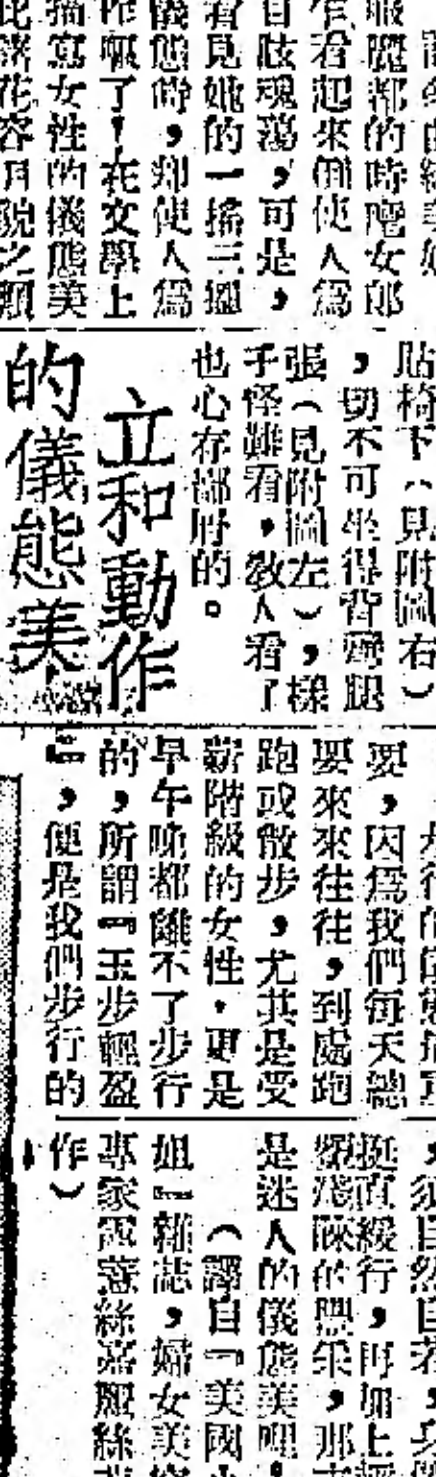 眼魔都的時髦女郎
乍看起來倒使人為
目眩魂蕩,可是,
看見她的一搖三擺
儀態時,却使人為
作嘔了!在文學上
描寫女性的儀態美
花容月貌之類
貼椅下(見附圖右)
,切不可坐得背彎腿
張(見附圖左),樣
子怪難看,教人看了
也心存鄙的。
立和動作
的儀態美
要,因為我們每天總
要來來往往,到處跑
跑或散步,尤其是受
薪階級的女性,更是
早午晚都離不了步行
的,所謂『玉步輕盈
』,便是我們步行的
,須自然自若,身
挺直緩行,再加上
的風采,那
是迷人的儀態美哩
(譯自『美國小
姐』雜誌,婦女美容
專家雪薏絲嘉服絲
作)